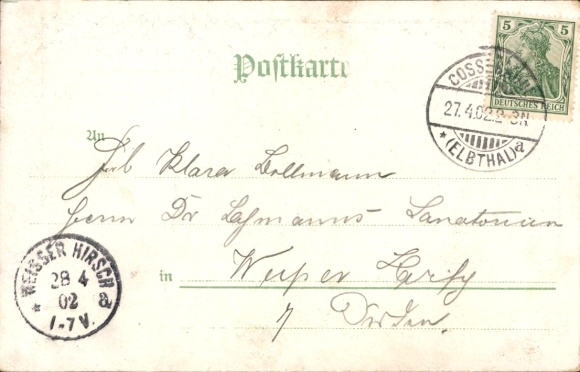 Postkarte
5 5
DEUTSCHES REICH
COSSEBAUDE
27.4.02.2-3N.
* (ELBTHAL) a
An
Frl. Klara Bollmann
Herrn Dr Lahmanns Sanatorium
in Weißer Hirsch
Dresden.
* WEISSER HIRSCH a
28 4
02
1-7 V.